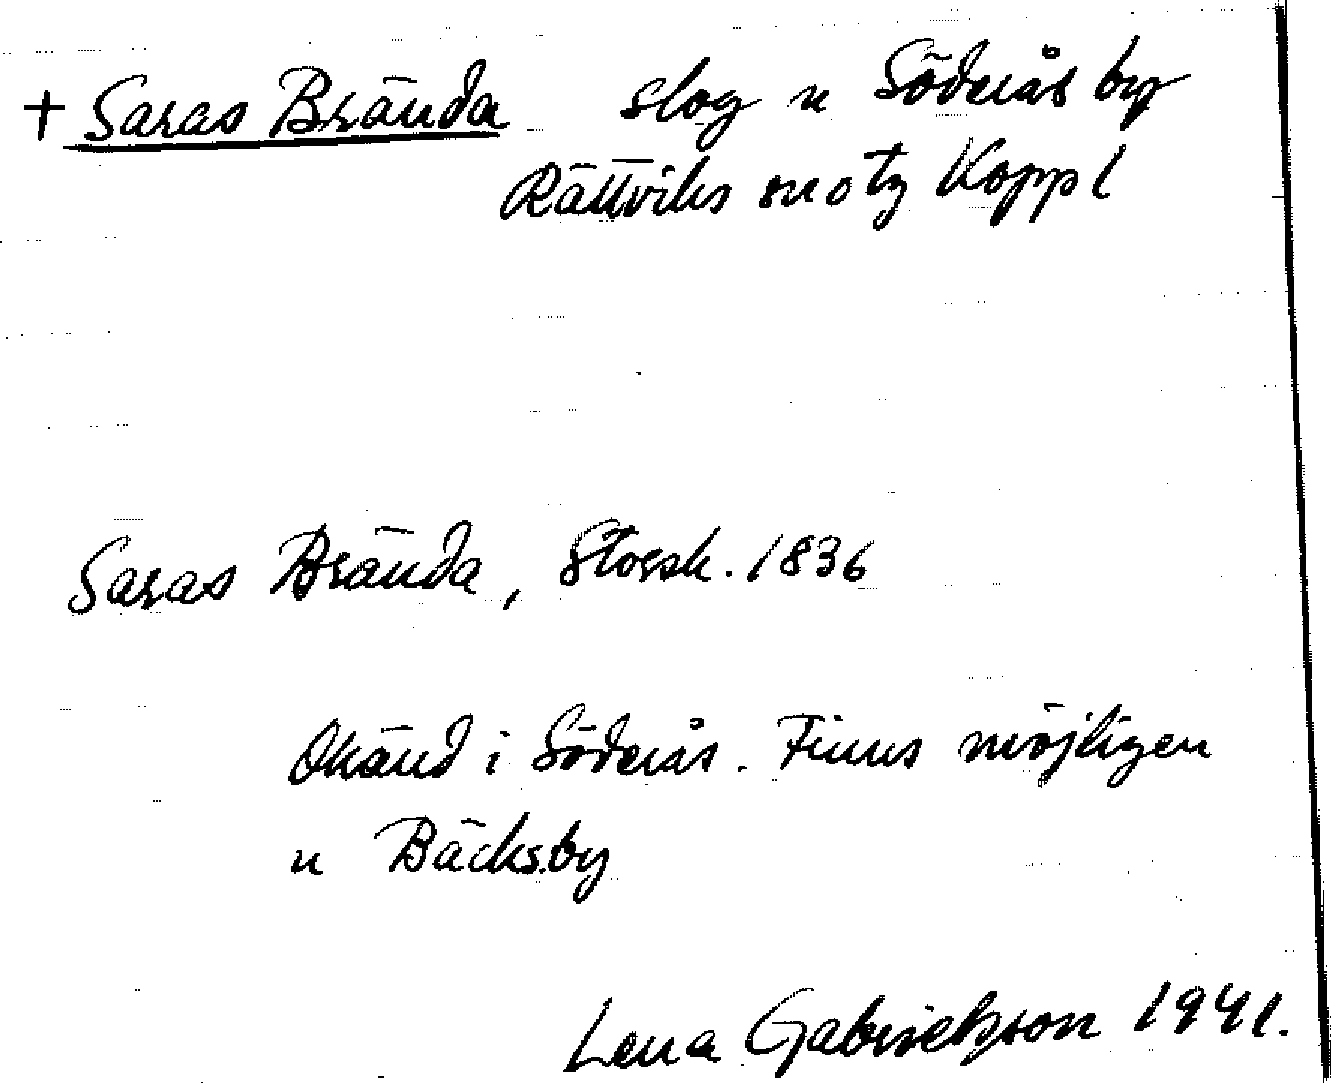 + Saras Brända slog n Söderås by
Rättviks sn o tg Koppl
Saras Brända, Storsk. 1836
Okänd i Söderås. Finns möjligen
n Bäcksby
Lena Gabrielsson 1941.